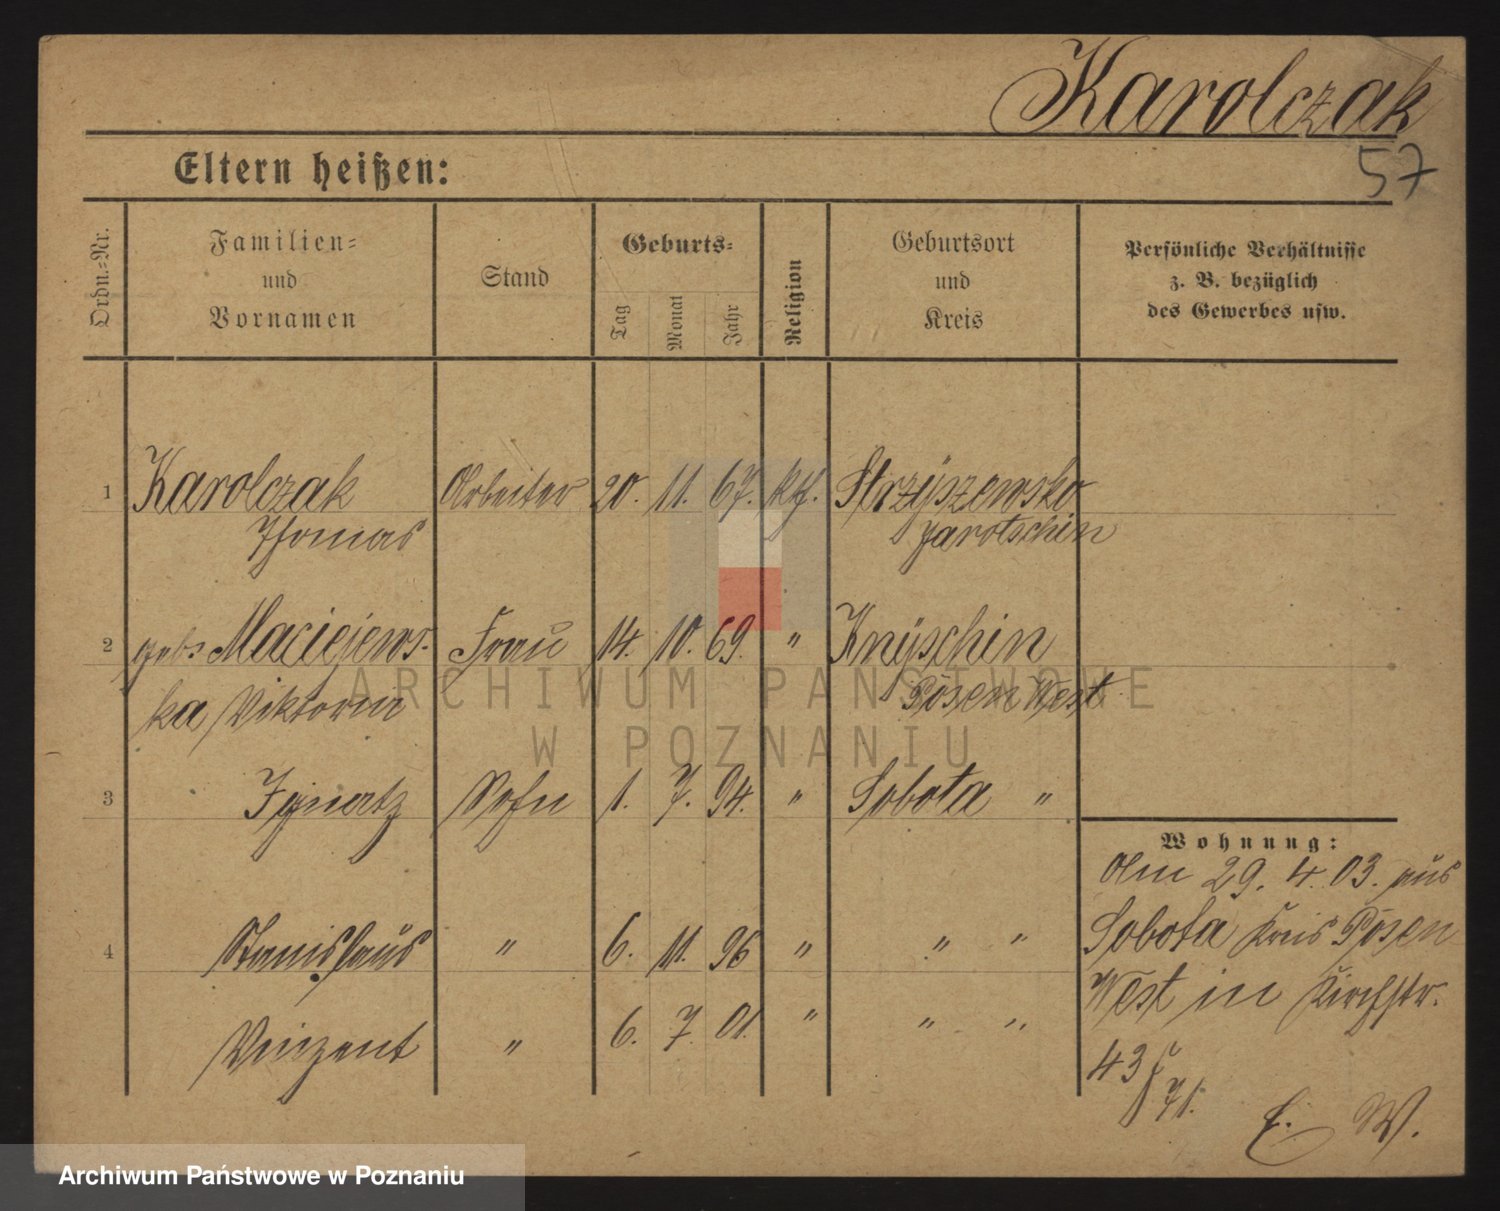 Karolczak
57
Eltern heißen:
Ordn.-Nr.
Familien-
und
Vornamen
Stand
Geburts-
Tag
Monat
Jahr
Religion
Geburtsort
und
Kreis
Persönliche Verhältnisse
z. B. bezüglich
des Gewerbes usw.
1 Karolczak Arbeiter 20. 11. 67. kth. Strzyszewsko
Thomas Jarotschin
2 geb. Maciejews- Frau 14. 10. 69. " Knyschin
ka Viktoria Posen West
3 Ignatz Sohn 1. 7. 94. " Sobota "
4 Stanislaus " 6. 11. 96 " " "
Vinzent " 6. 7. 01. " " "
Wohnung:
Am 29. 4. 03. aus
Sobota Kreis Posen
West in Kirchstr.
43
71.
E. W.
ARCHIWUM PAŃSTWOWE
W POZNANIU
Archiwum Państwowe w Poznaniu